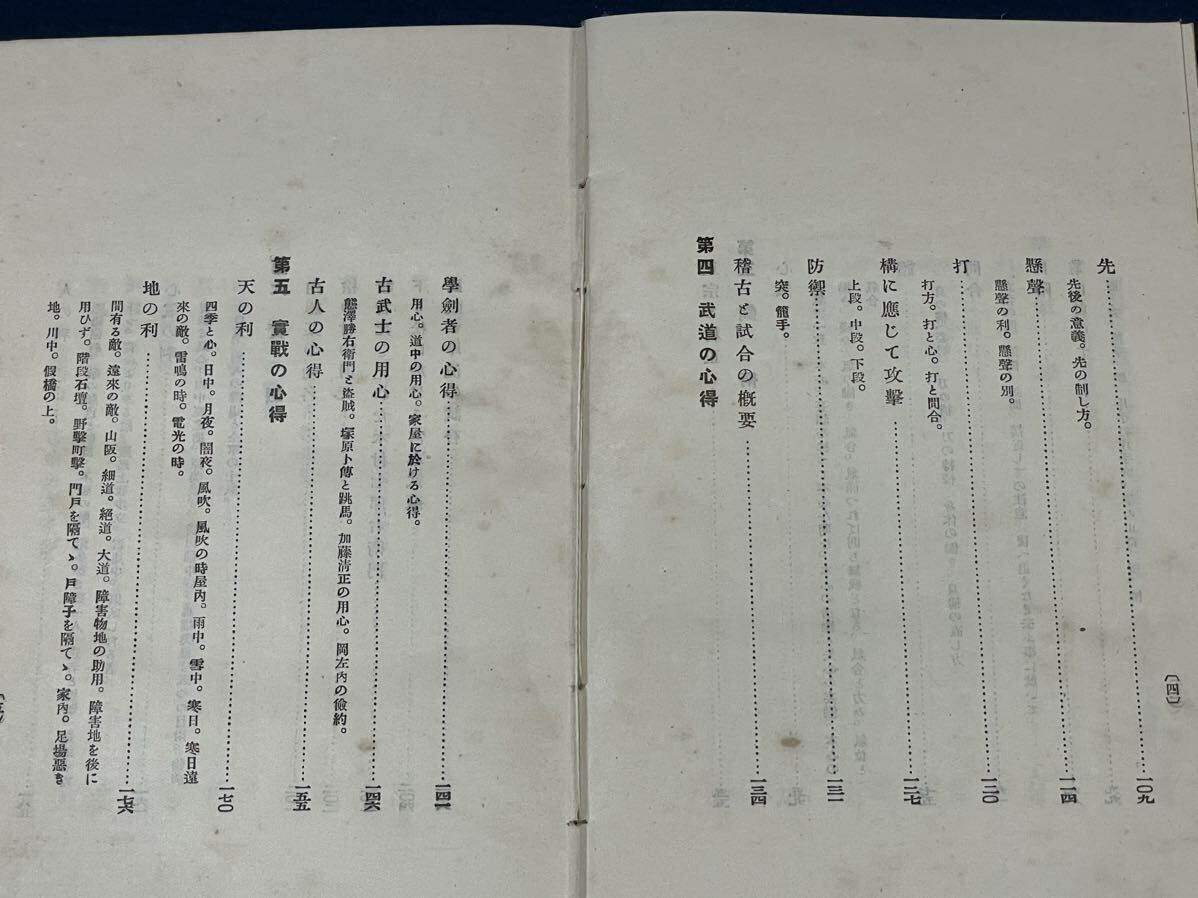 〔四〕
先……………一〇九
先後の意義。先の制し方。
懸聲……………一一四
懸聲の利。懸聲の別。
打……………一二〇
打方。打と心。打と間合。
構に應じて攻擊……………一二七
上段。中段。下段。
防禦……………一三一
突。籠手。
稽古と試合の槪要……………一三四
第四 武道の心得
學劍者の心得……………一四一
用心。道中の用心。家屋に於ける心得。
古武士の用心……………一四六
熊澤勝右衞門と盜賊。塚原卜傳と跳馬。加藤淸正の用心。岡左內の儉約。
古人の心得……………一五五
第五 實戰の心得
天の利……………一七〇
四季と心。日中。月夜。闇夜。風吹。風吹の時屋內。雨中。雪中。寒日。寒日遠
來の敵。雷鳴の時。電光の時。
地の利……………一七六
間有る敵。遠來の敵。山阪。細道。絕道。大道。障害物地の助用。障害地を後に
用ひず。階段石壇。野擊町擊。門戶を隔てゝ。戶障子を隔てゝ。家內。足場惡き
地。川中。假橋の上。